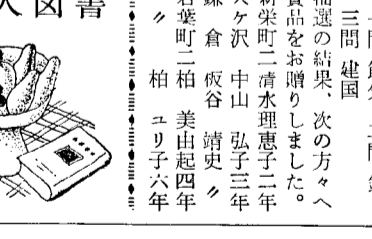 三問 建国
抽選の結果、次の方々へ
賞品をお贈りしました。
新栄町二 清水理恵子 二年
ヶ沢 中山 弘子 三年
鎌倉 仮谷 靖史 〃
若葉町二 柏 美由起 四年
〃 柏 ユリ子 六年
図書